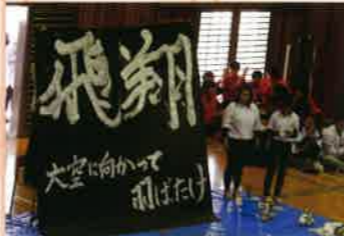 飛翔
大空に向かって
羽ばたけ